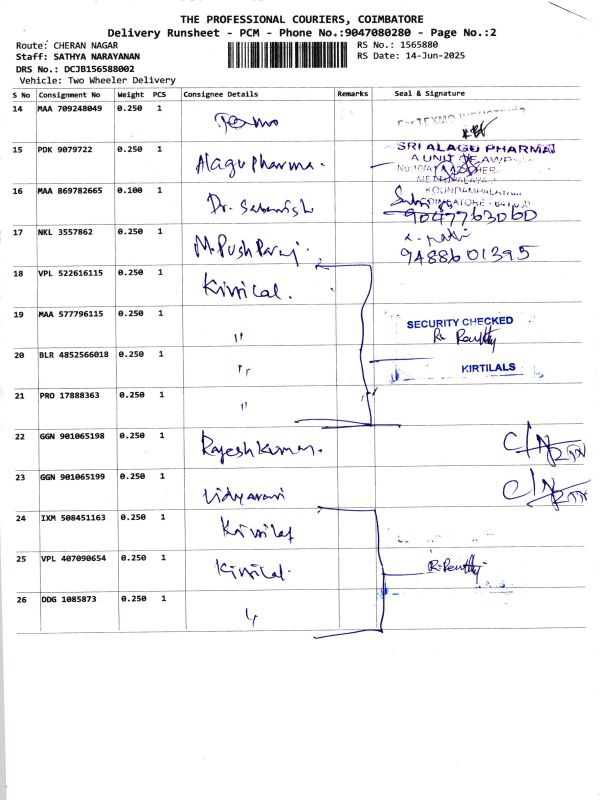 THE PROFESSIONAL COURIERS, COIMBATORE
Delivery Runsheet - PCM - Phone No.:9047080280 - Page No.:2
Route: CHERAN NAGAR
RS No.: 1565880
Staff: SATHYA NARAYANAN
RS Date: 14-Jun-2025
DRS No.: DCJB156588002
Vehicle: Two Wheeler Delivery
S No Consignment No Weight PCS Consignee Details Remarks Seal & Signature
14 MAA 709248049 0.250 1 Texmo For TEXMO INDUSTRIES
15 PDK 9079722 0.250 1 Alagu Pharma. SRI ALAGU PHARMA
A UNIT OF
16 MAA 869782665 0.100 1 Dr. KOUNDAMPALAYAM
COIMBATORE
9047763060
17 NKL 3557862 0.250 1 M. Pushparaj.
9488601395
18 VPL 522616115 0.250 1 Kirtilal.
19 MAA 577796115 0.250 1 " SECURITY CHECKED
20 BLR 4852566018 0.250 1 " KIRTILALS
21 PRO 17888363 0.250 1 "
22 GGN 901065198 0.250 1 Rajeshkumar. C/N
23 GGN 901065199 0.250 1 C/N
24 IXM 508451163 0.250 1 Kirtilal
25 VPL 407090654 0.250 1 Kirtilal.
26 DDG 1085873 0.250 1 "